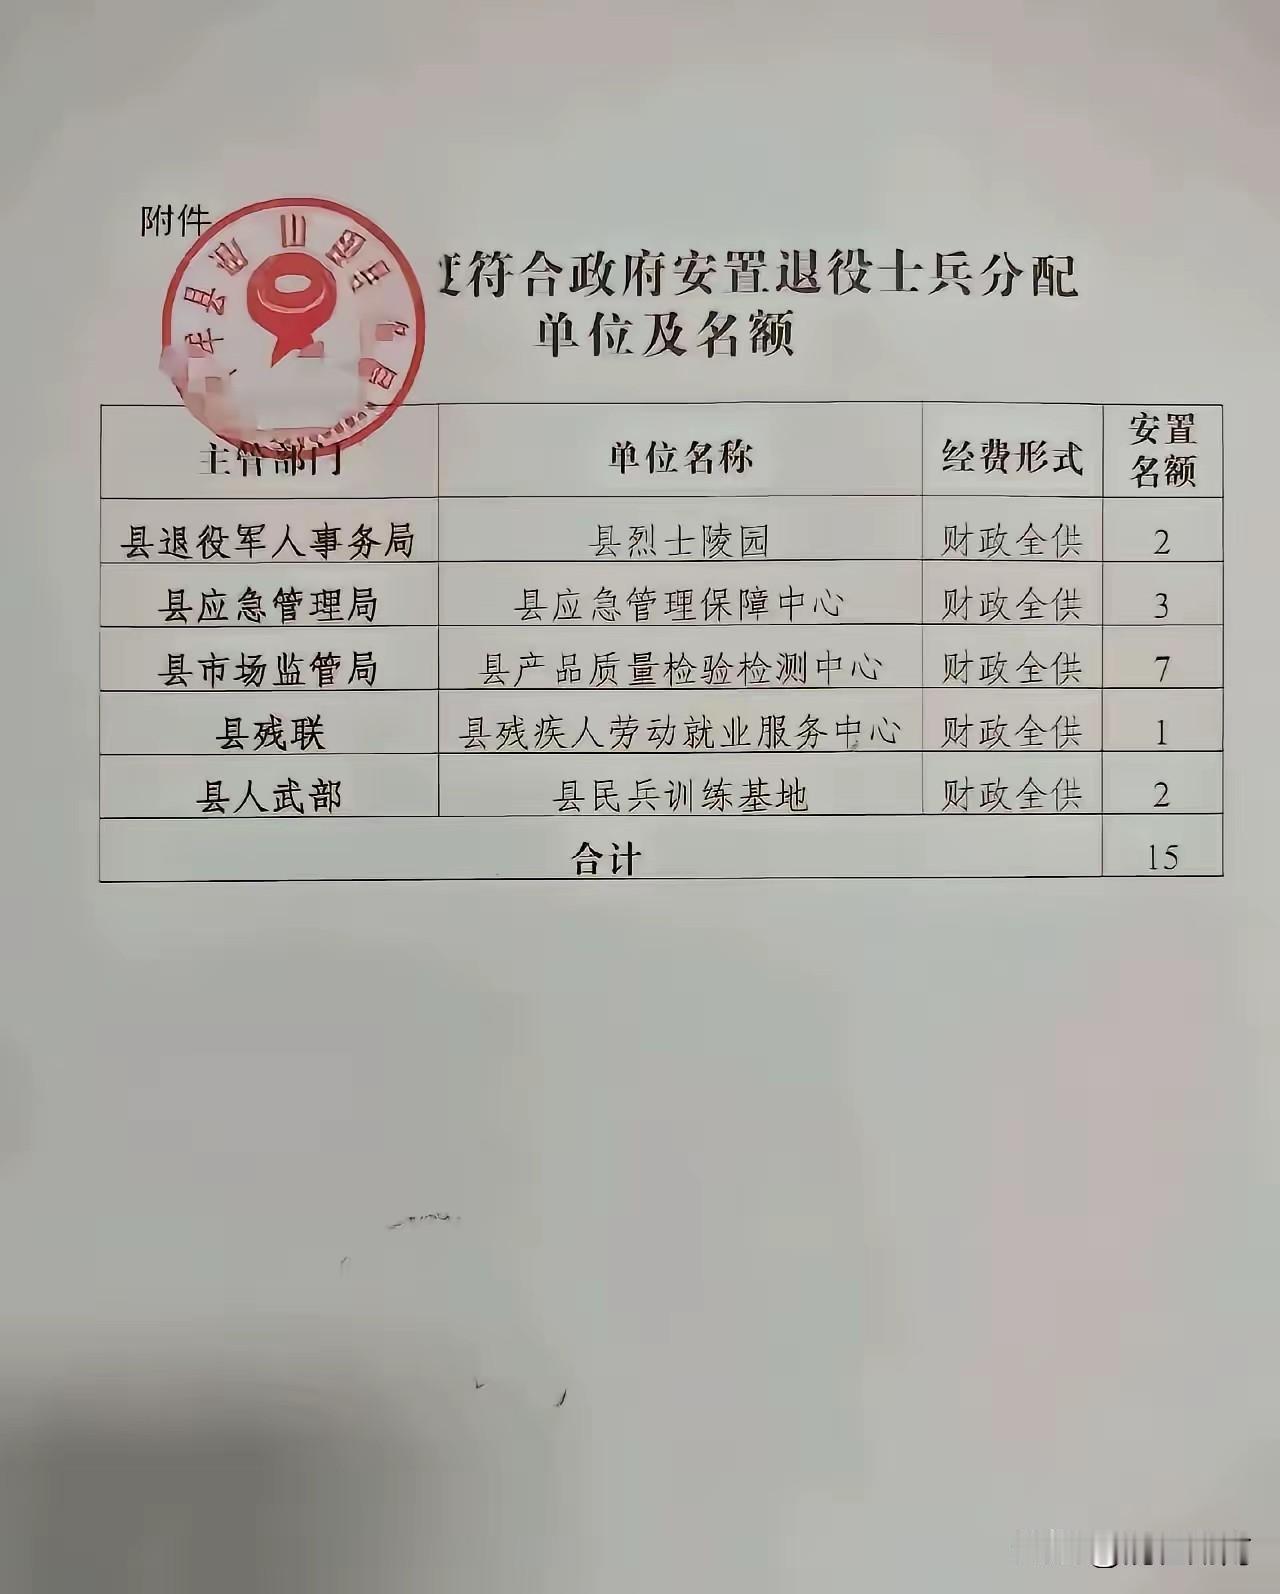 附件
符合政府安置退役士兵分配
单位及名额
主管部门 单位名称 经费形式 安置名额
县退役军人事务局 县烈士陵园 财政全供 2
县应急管理局 县应急管理保障中心 财政全供 3
县市场监管局 县产品质量检验检测中心 财政全供 7
县残联 县残疾人劳动就业服务中心 财政全供 1
县人武部 县民兵训练基地 财政全供 2
合计 15